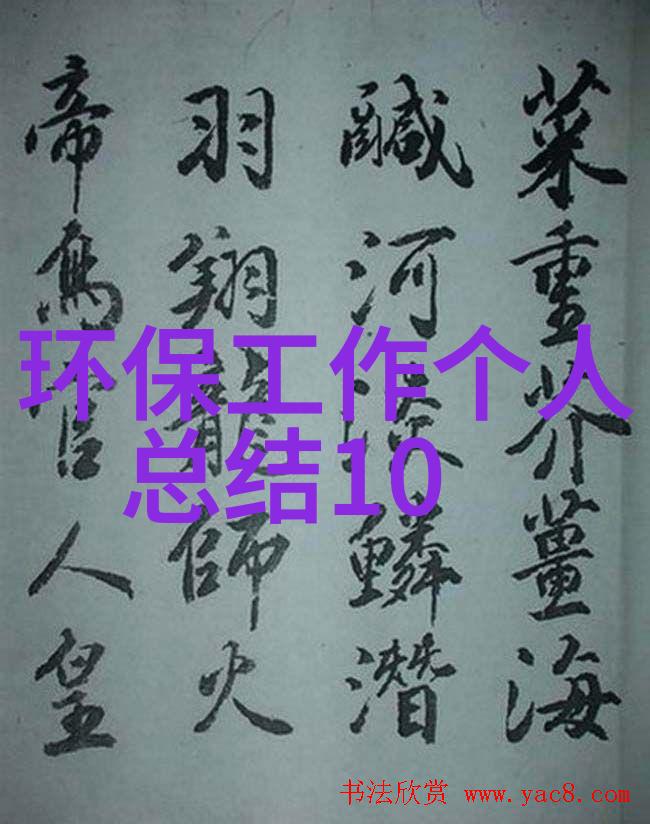 菜重芥薑海
鹹河淡鱗潛
羽翔龍師火
帝鳥官人皇
环保工作个人
总结10
书法欣赏 www.yac8.com